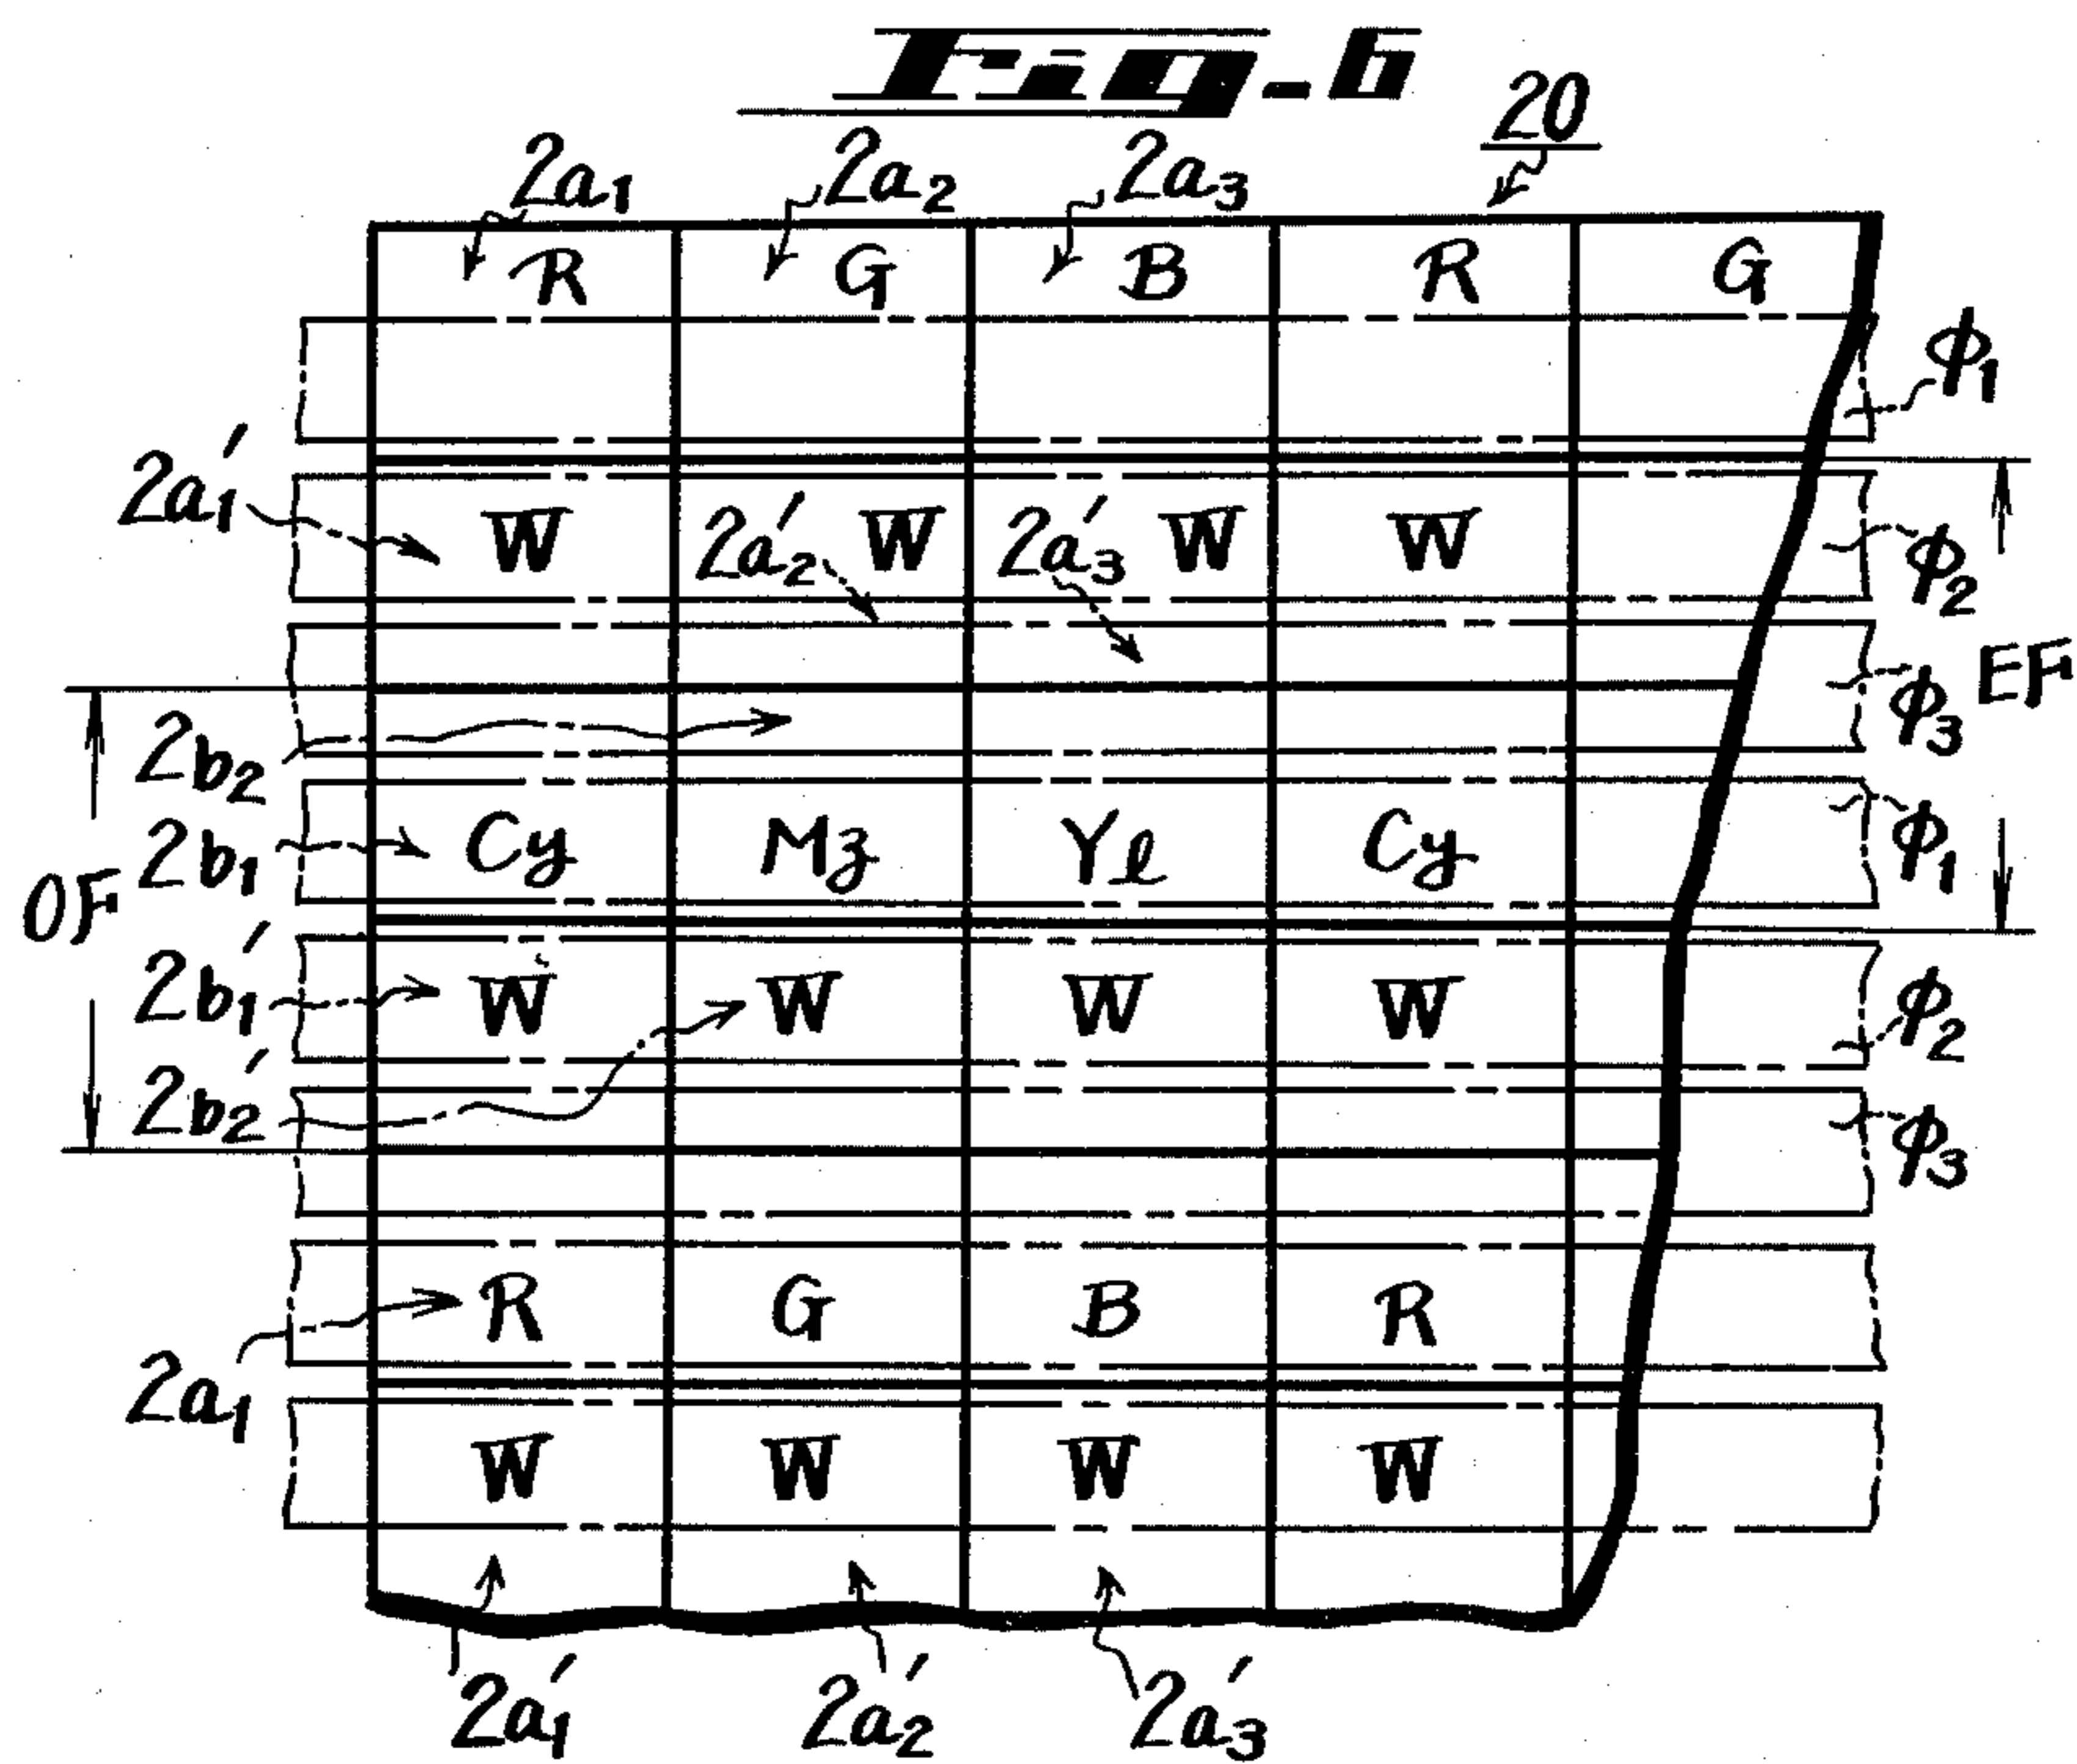 Fig-6
20
2a1 2a2 2a3
R G B R G
ϕ1
2a'1 W 2a'2 W 2a'3 W W
ϕ2
ϕ3 EF
2b2
2b1 Cy Mz Yl Cy ϕ1
OF
2b'1 W W W W ϕ2
2b'2 ϕ3
R G B R
2a1
W W W W
2a'1 2a'2 2a'3